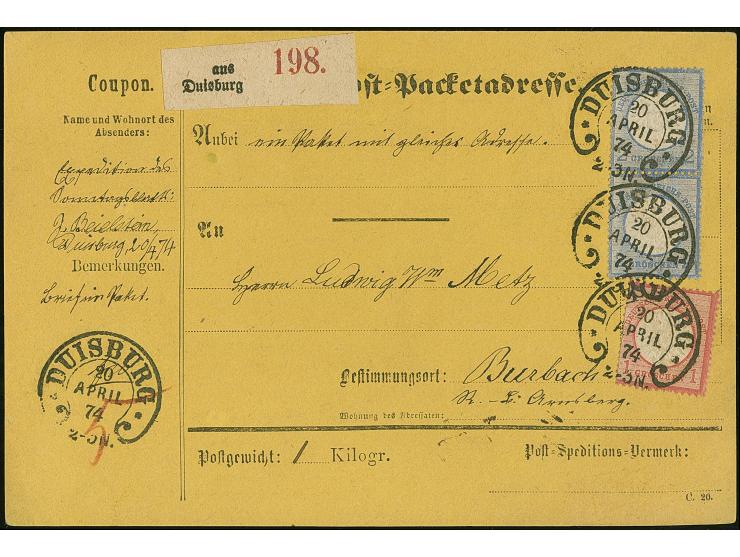 Coupon.
Name und Wohnort des
Absenders:
Expedition des
Sonntagsblatt:
J. Beielstein,
Duisburg, 20/4/74
Bemerkungen.
Brief in Paket.
DUISBURG
20
APRIL
74
2-3N.
5
aus
Duisburg
198.
Post-Packetadresse.
Anbei ein Paket mit gleicher Adresse.
An
Herrn Ludwig Wm Metz
Bestimmungsort: Burbach
R. B. Arnsberg.
Wohnung des Adressaten:
Postgewicht: 1 Kilogr.
Post-Speditions-Vermerk:
C. 20.
DUISBURG
20
APRIL
74
2-3N.
2 GROSCHEN 2
DUISBURG
20
APRIL
74
GROSCHEN
DUISBURG
20
APRIL
74
2-3N.
1 1